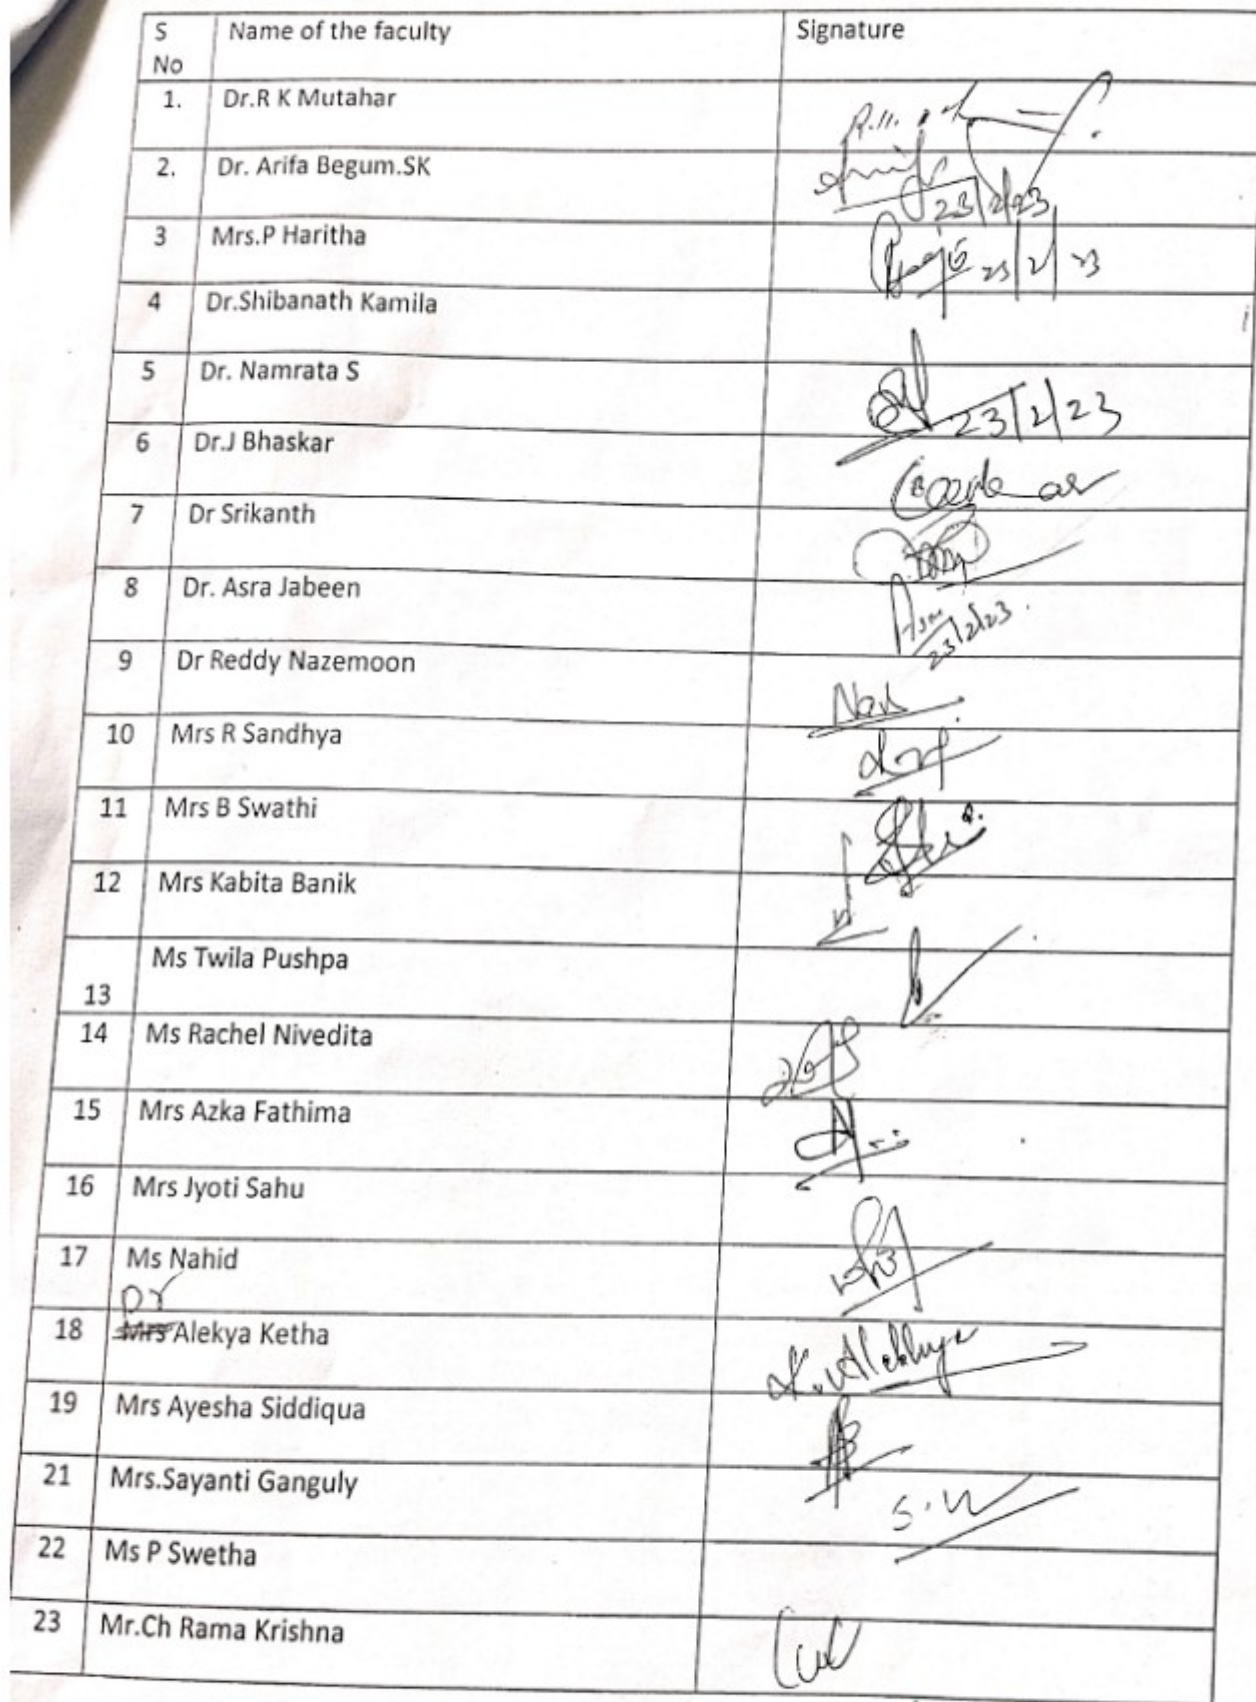 S No Name of the faculty Signature
1. Dr.R K Mutahar
2. Dr. Arifa Begum.SK 23/2/23
3 Mrs.P Haritha 23/2/23
4 Dr.Shibanath Kamila
5 Dr. Namrata S 23/2/23
6 Dr.J Bhaskar
7 Dr Srikanth
8 Dr. Asra Jabeen 23/2/23
9 Dr Reddy Nazemoon
10 Mrs R Sandhya
11 Mrs B Swathi
12 Mrs Kabita Banik
13 Ms Twila Pushpa
14 Ms Rachel Nivedita
15 Mrs Azka Fathima
16 Mrs Jyoti Sahu
17 Ms Nahid
Dr
18 Mrs Alekya Ketha
19 Mrs Ayesha Siddiqua
21 Mrs.Sayanti Ganguly
22 Ms P Swetha
23 Mr.Ch Rama Krishna